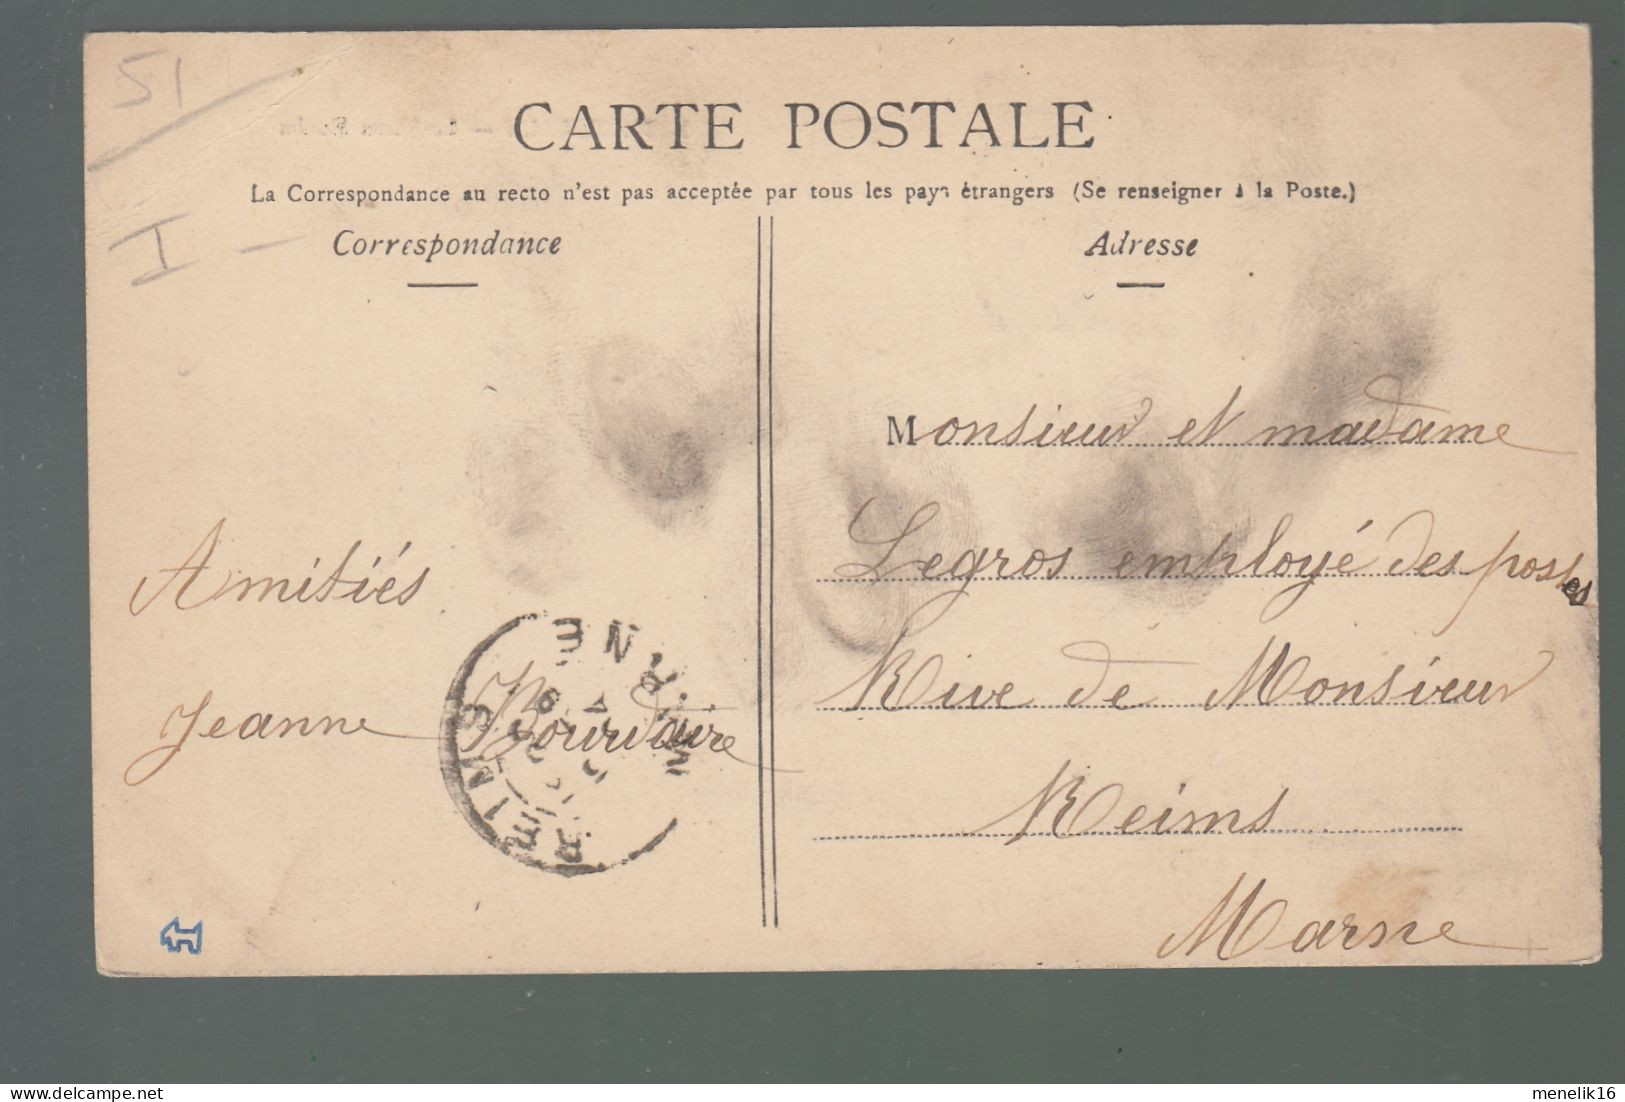 51
I -
CARTE POSTALE
La Correspondance au recto n'est pas acceptée par tous les pays étrangers (Se renseigner à la Poste.)
Correspondance
Amitiés
Jeanne Bourdaire
REIMS
MARNE
Adresse
Monsieur et madame
Legros employé des postes
Rive de Monsieur
Reims
Marne
menelik16